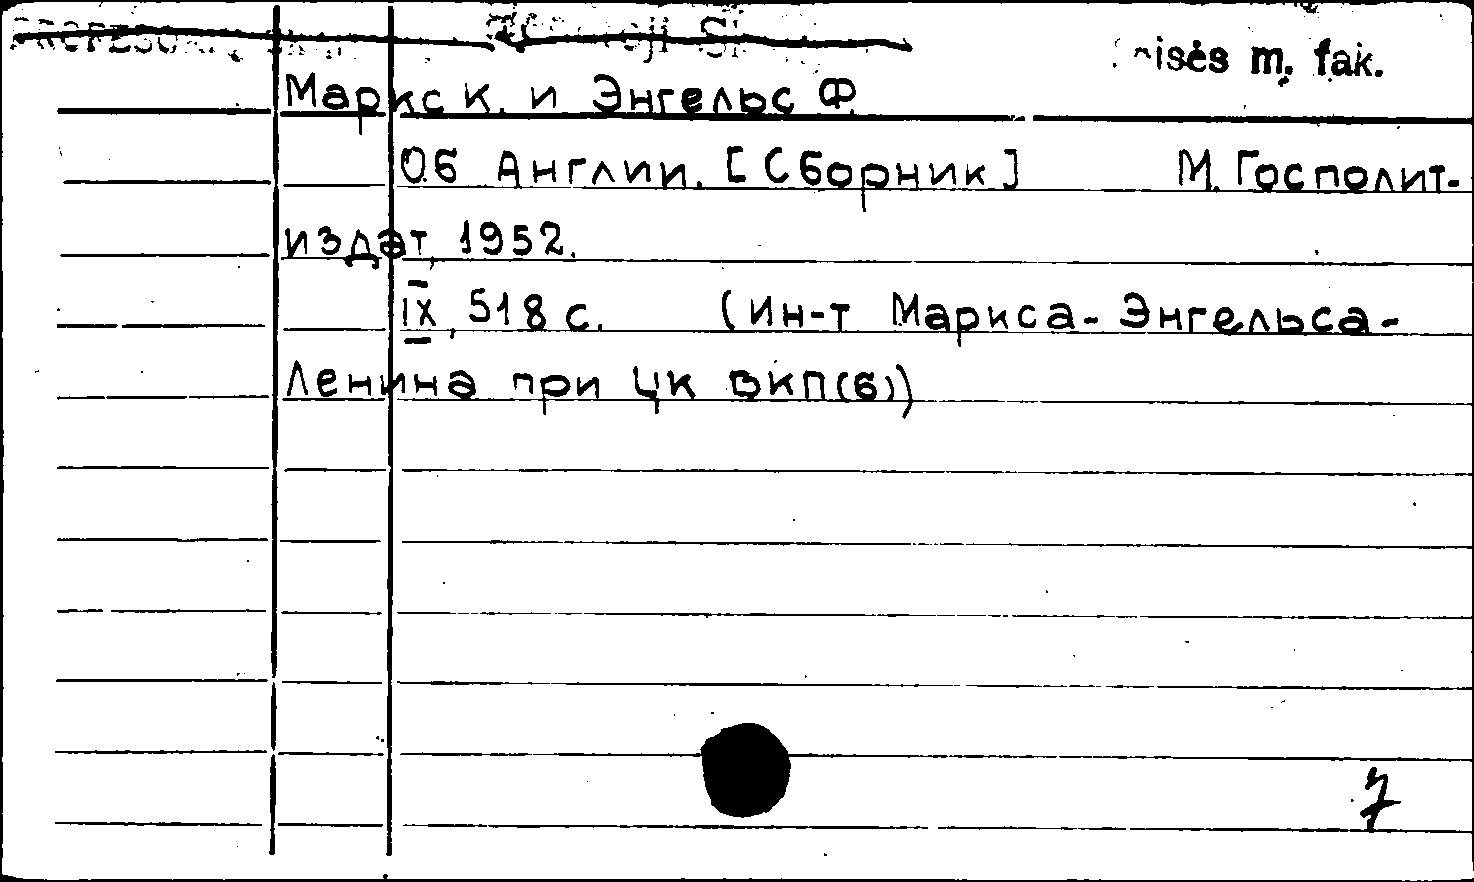 m. fak.
Маркс К. и Энгельс Ф.
Об Англии. [Сборник] М. Госполит-
издат, 1952.
IX, 518 с. (Ин-т Маркса-Энгельса-
Ленина при ЦК ВКП(б))
7